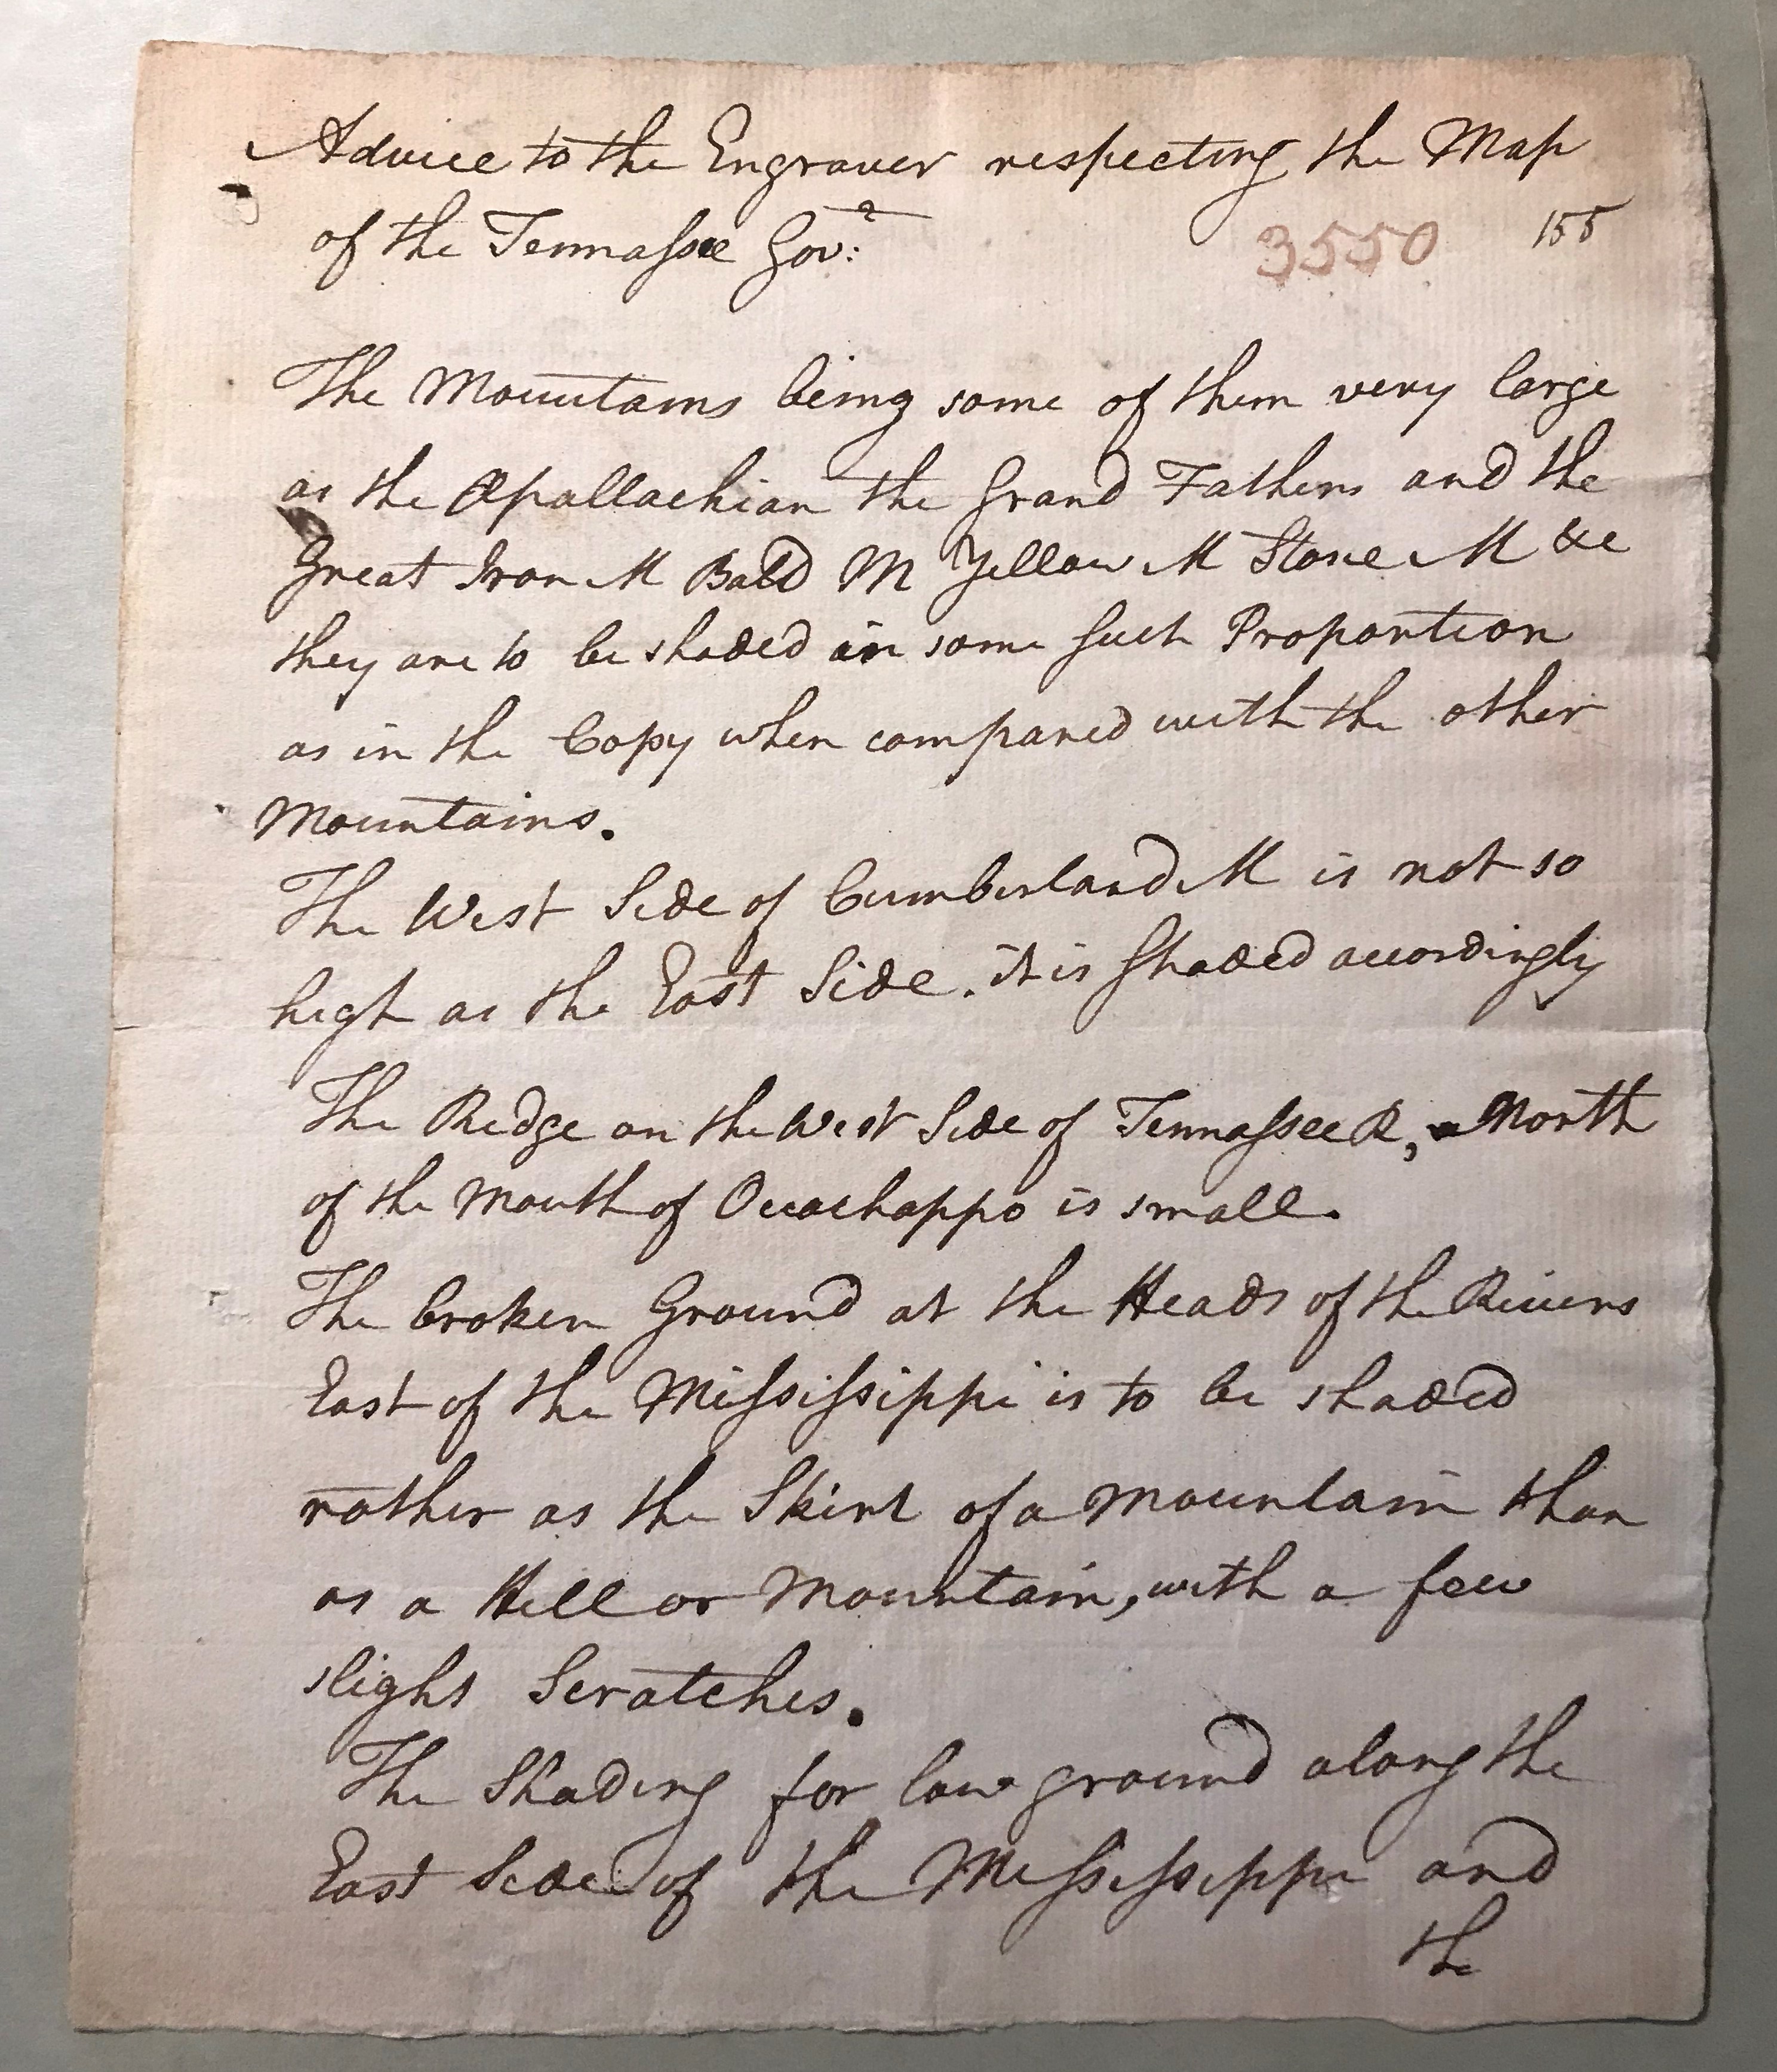 Advice to the Engraver respecting the Map
of the Tennassee Gov:t
3550 155
The Mountains being some of them very large
as the Apallachian the Grand Fathers and the
Great Iron M Bald M Yellow M Stone M &c
they are to be shaded in some such Proportion
as in the Copy when compared with the other
Mountains.
The West Side of Cumberland M is not so
high as the East Side. it is shaded accordingly
The Ridge on the West Side of Tennassee R, North
of the Mouth of Ocochappo is small.
The broken Ground at the Heads of the Rivers
East of the Mississippi is to be shaded
rather as the Skirt of a Mountain than
as a Hill or Mountain, with a few
slight Scratches.
The Shading for low ground along the
East Side of the Mississippi and
the